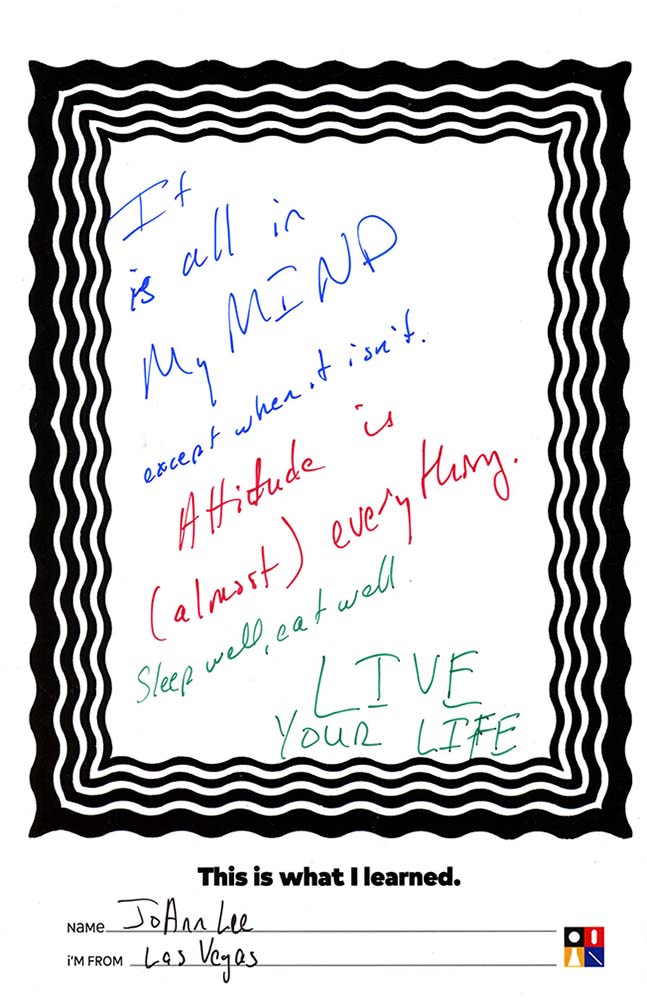 It
is all in
My MIND
except when it isn't.
Attitude is
(almost) everything.
Sleep well, eat well.
LIVE
YOUR LIFE
This is what I learned.
NAME JoAnn Lee
i'M FROM Las Vegas